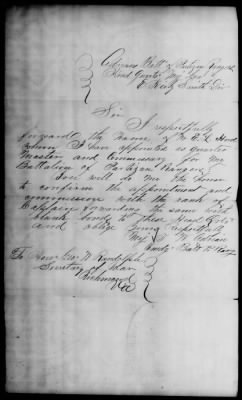 Adrians Batt of Partizan Rangers
Head Quarters
E Kirby Smith Div
Sir
I respectfully
forward the name of
whom I have appointed as quarter
Master and Commissary for my
Battalion of Partizan Rangers
you will do me the honor
to confirm the appointment and
commission with the rank of
Captain forwarding the same with
blank bonds to these Head Qrts
and oblige yours respectfully
Maj
To Hon Geo W Randolph
Secretary of War
Richmond
Va